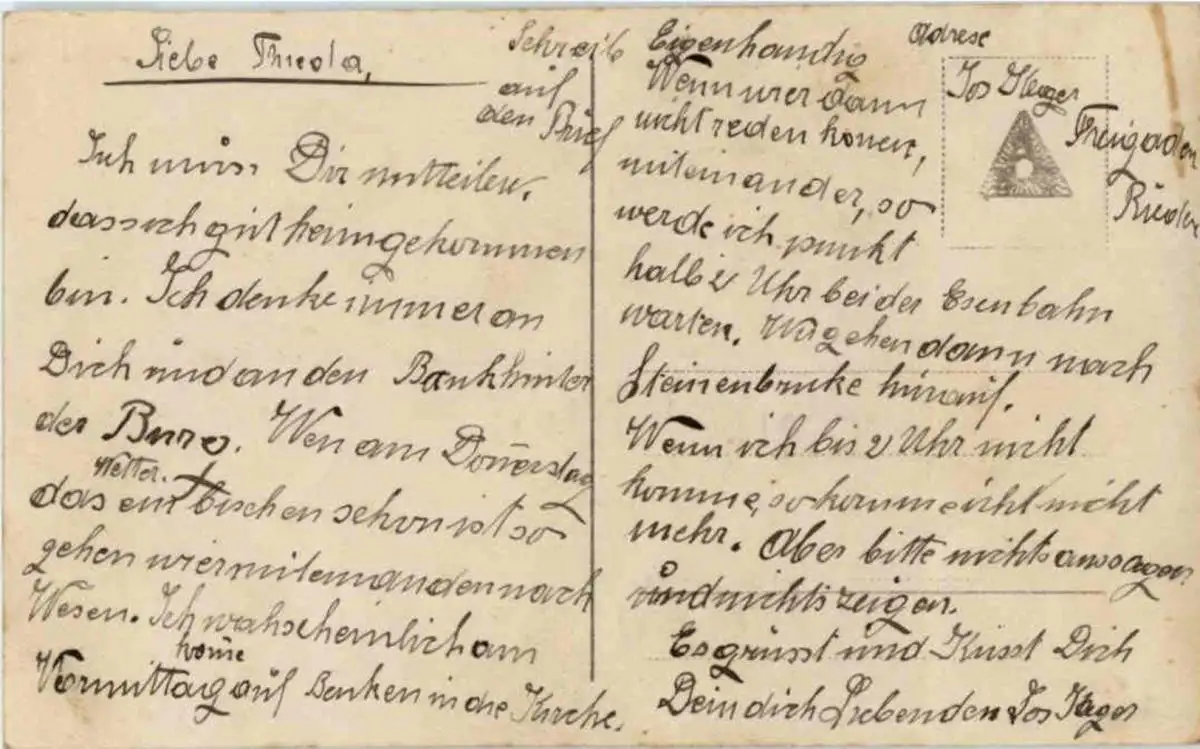 Liebe
Ich muss Dir mitteilen,
dass ich gut heimgekommen
bin. Ich denke immer an
Dich und an den Bank hinter
der Buro. Wen am Donerstag
Wetter.
das ein bischen schon ist so
gehen wier miteinander nach
Wesen. Ich wahscheinlich am
kome
Vormittag auf Banken in die Kirche.
Schreib
auf
den Brief
Eigenhandig
Wenn wier dann
nicht reden konen,
miteinander, so
werde ich punkt
halb 2 Uhr bei der Esenbahn
warten. Wir gehen dann nach
Steinenbruke hinauf.
Wenn ich bis 2 Uhr nicht
komme, so komme ich nicht
mehr. Aber bitte nichts aussagen
und nichts zeigen.
Es grüsst und Küsst Dich
Dein dich Liebenden Jos
Adrese
Jos